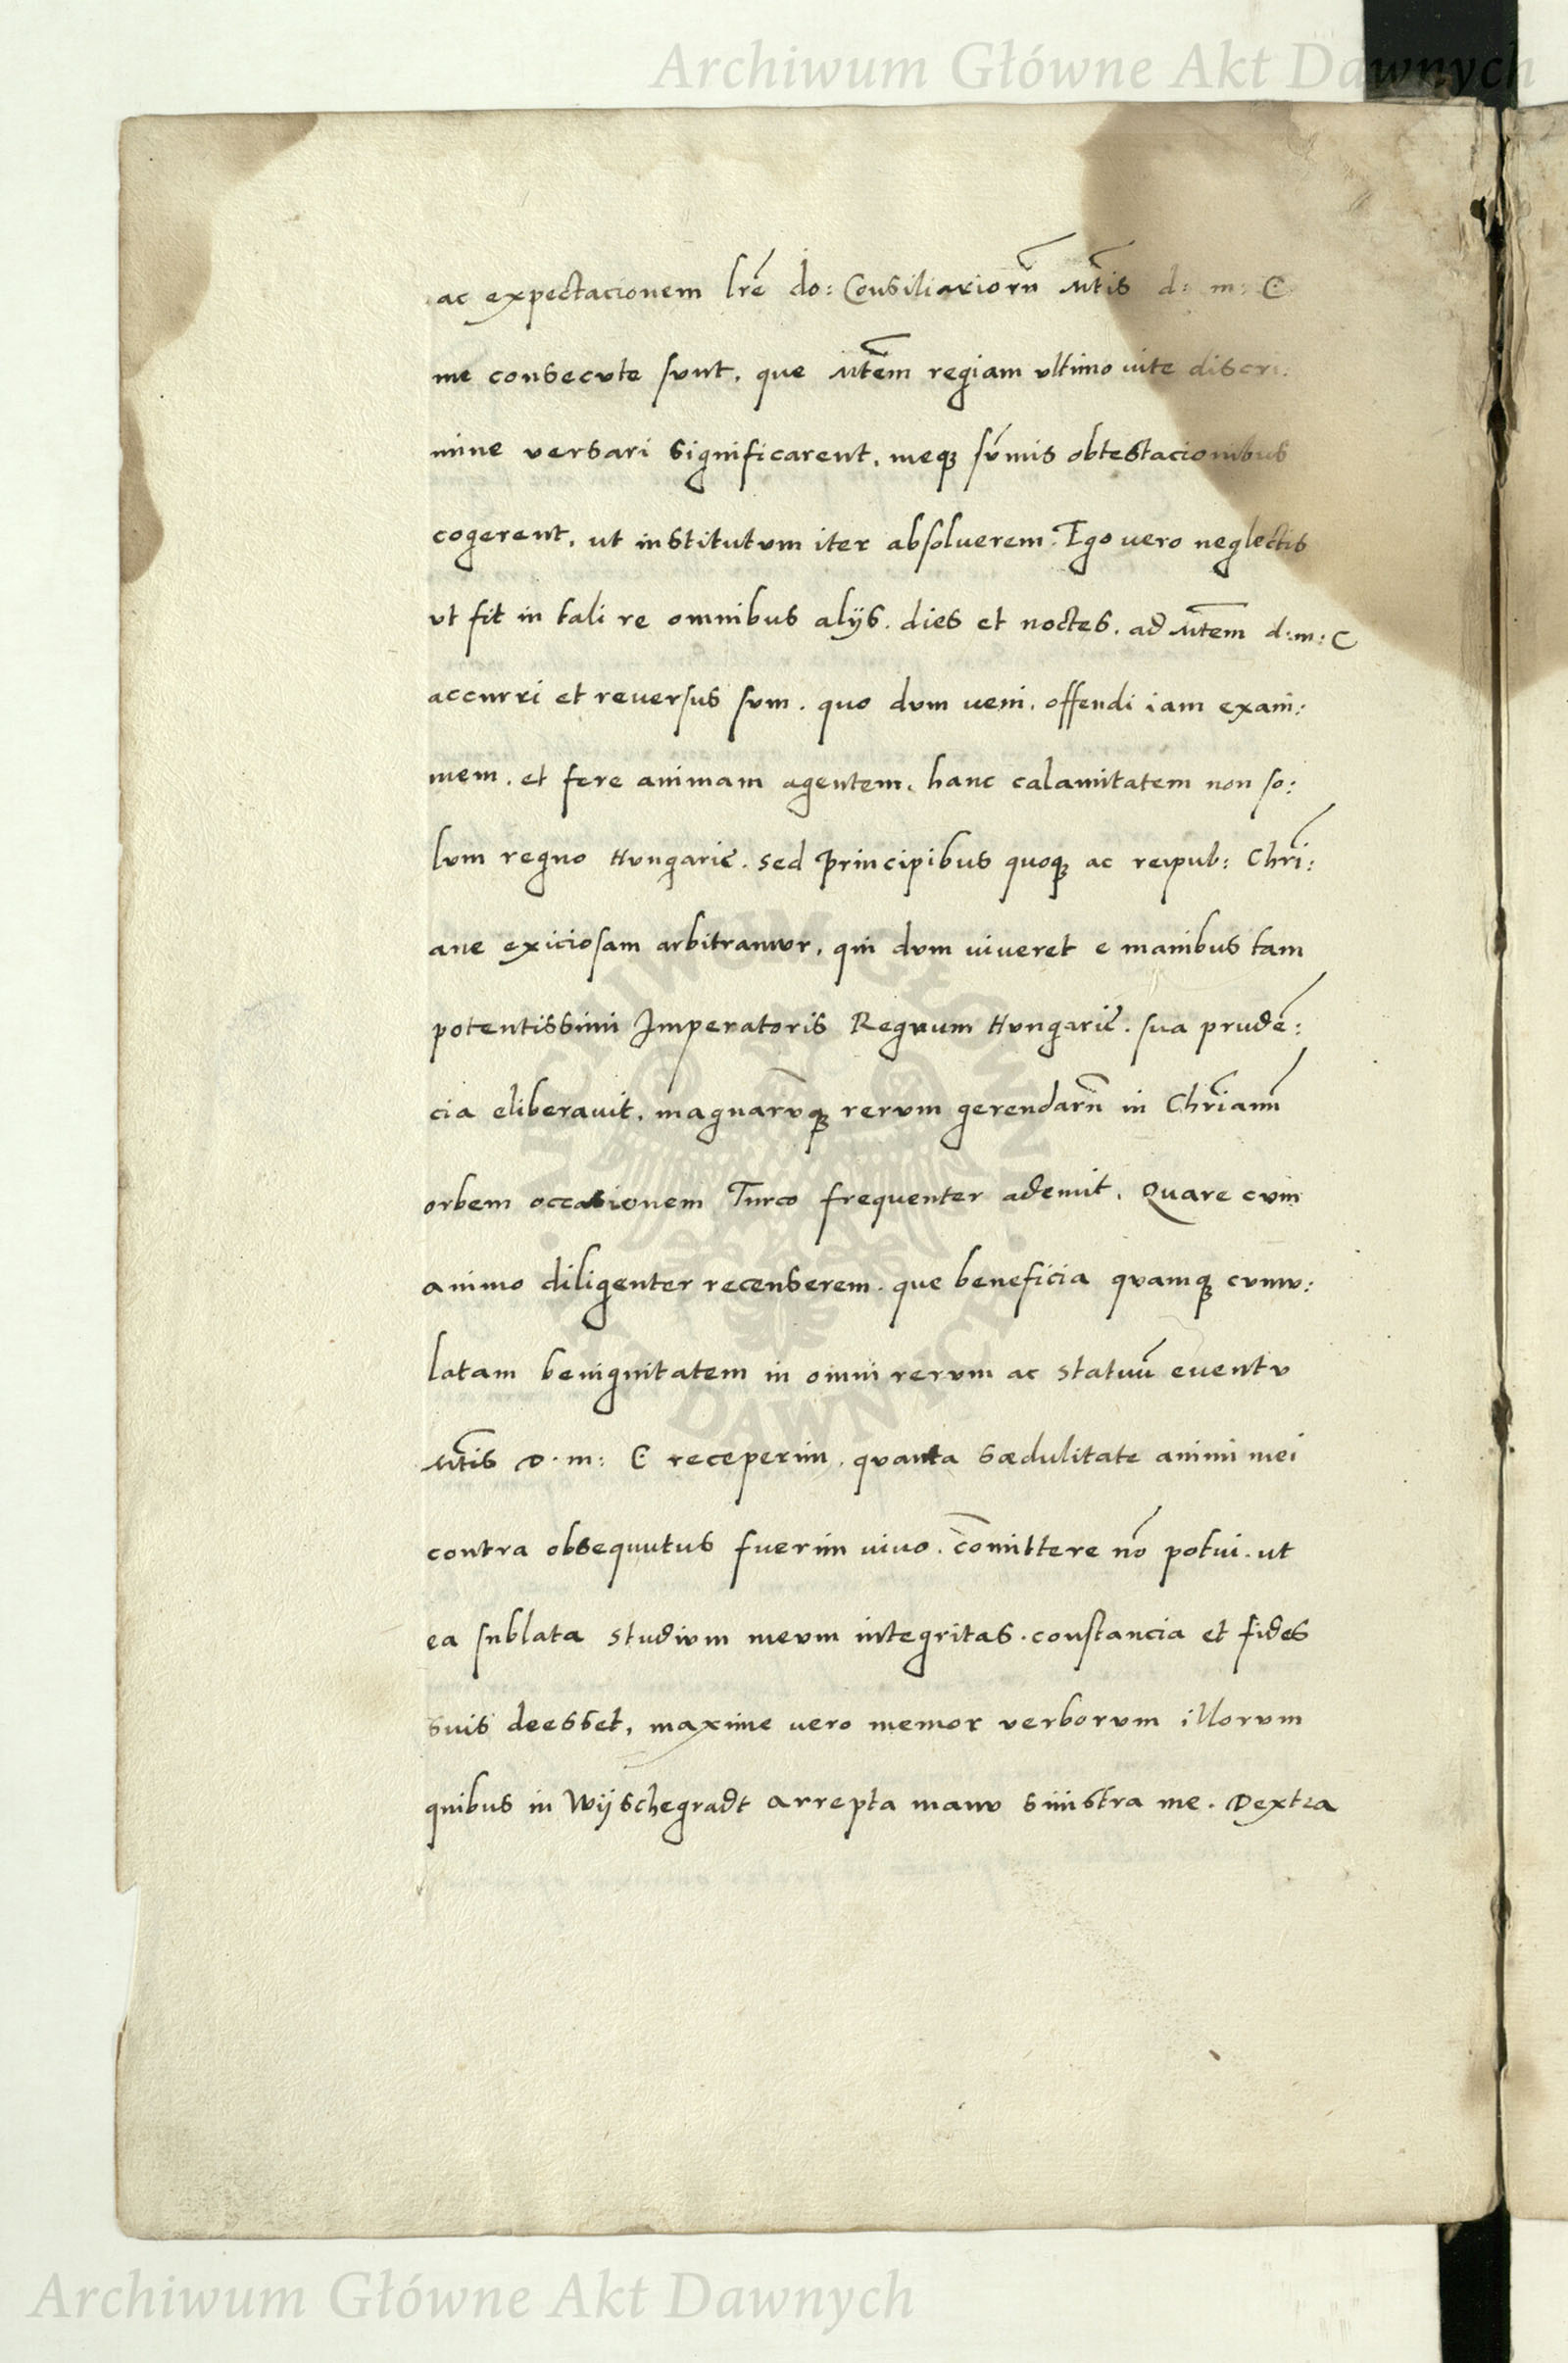 Archiwum Główne Akt Dawnych
ac expectacionem lrē do: Consiliariorū Mtis d: m: C
me consecute sunt, que Mtēm regiam ultimo uite discri:
mine versari significarent, meqȝ sūmis obtestacionibus
cogerent, ut institutum iter absoluerem. Ego uero neglectis
ut fit in tali re omnibus alijs. dies et noctes. ad Mtēm d:m:C
accurri et reuersus sum. quo dum ueni, offendi iam exani:
mem. et fere animam agentem. hanc calamitatem non so:
lum regno Hungariē. sed principibus quoqȝ ac reipub: Chrī:
ane exiciosam arbitramur, qui dum uiueret e manibus tam
potentissimi Imperatoris Regnum Hungariē. sua prudē:
cia eliberauit, magnarūqȝ rerum gerendarū in Chrīanū
orbem occasionem Turco frequenter ademit. Quare cum
animo diligenter recenserem. que beneficia quamqȝ cumu:
latam benignitatem in omni rerum ac statuū euentu
Mtis D. m: C receperim, quanta sædulitate animi mei
contra obsequutus fuerim uiuo. cōmittere nō potui. ut
ea sublata studium meum integritas. constancia et fides
suis deesset, maxime uero memor uerborum illorum
quibus in Wijschegradt arrepta manu sinistra me. Dextra
ARCHIWUM GŁÓWNE AKT DAWNYCH
Archiwum Główne Akt Dawnych